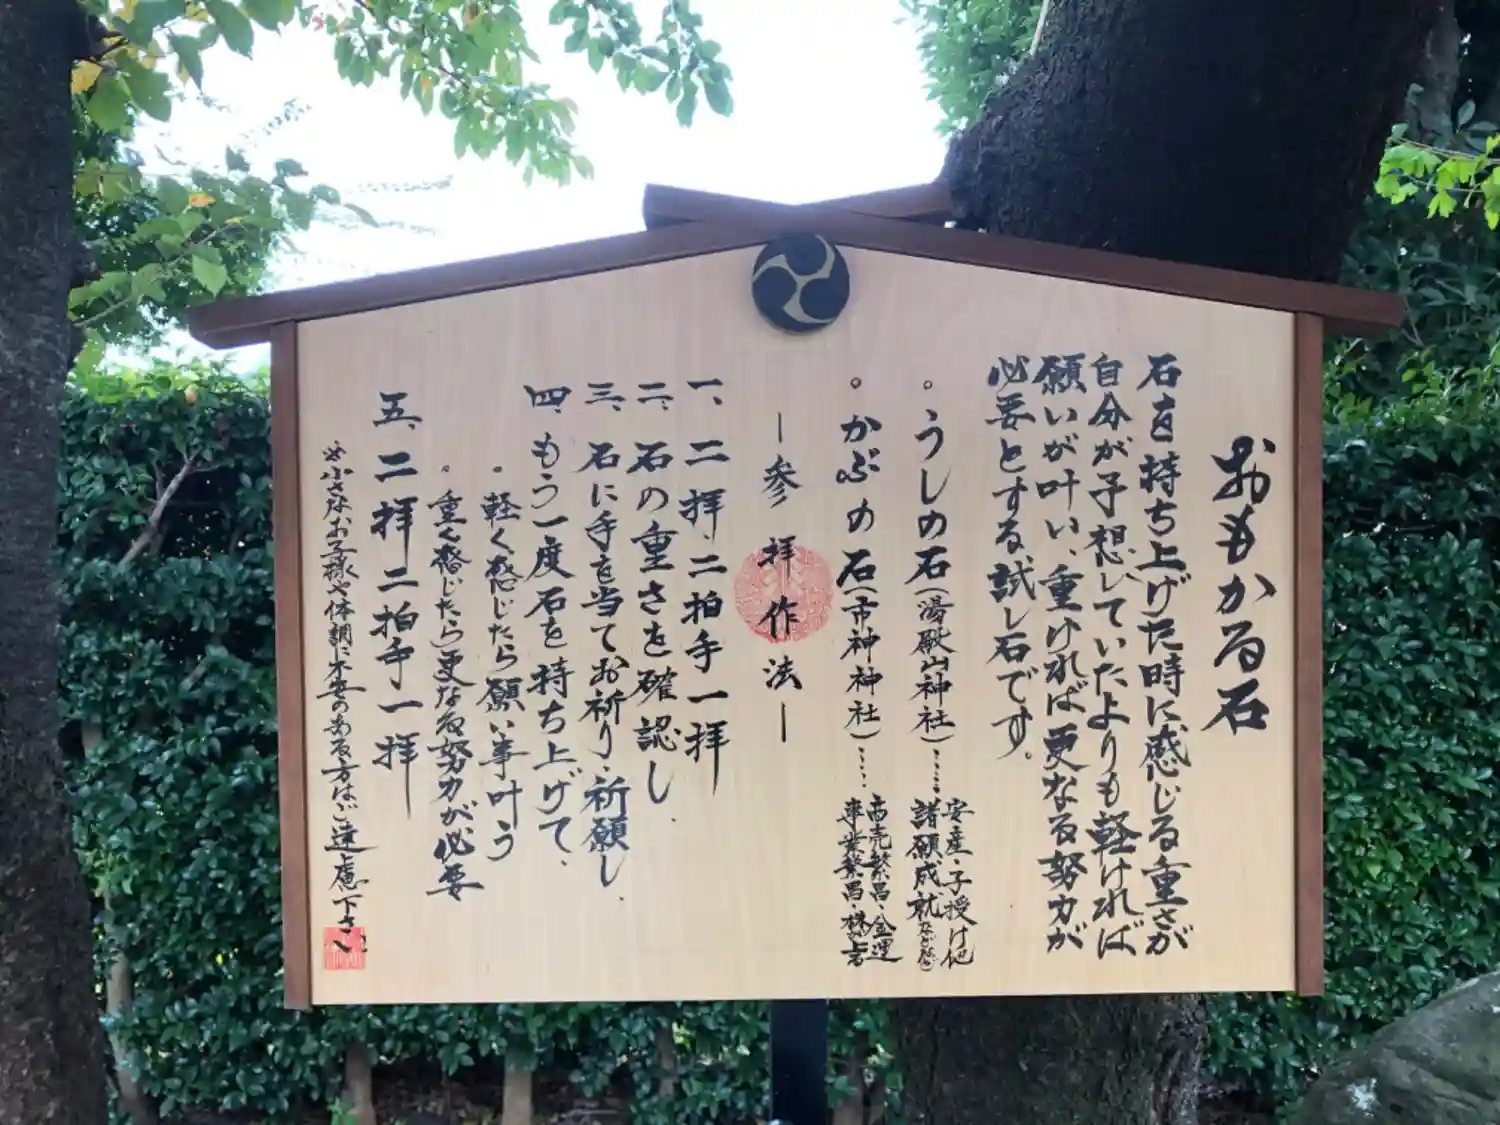 おもかる石
石を持ち上げた時に感じる重さが
自分が予想していたよりも軽ければ
願いが叶い、重ければ更なる努力が
必要とする、試し石です。
。うしの石(湯殿山神社)……
安産・子授け他
諸願成就などなど
。かぶの石(市神神社)……
商売繁昌・金運
事業繁昌・株去
ー参拝作法ー
一、二拝、二拍手一拝
二、石の重さを確認し、
三、石に手を当てお祈り、祈願し、
四、もう一度石を持ち上げて、
。軽く感じたら願い事叶う
。重く感じたら更なる努力が必要
五、二拝二拍手一拝
※小さなお子様や体調に不安のある方はご遠慮下さい